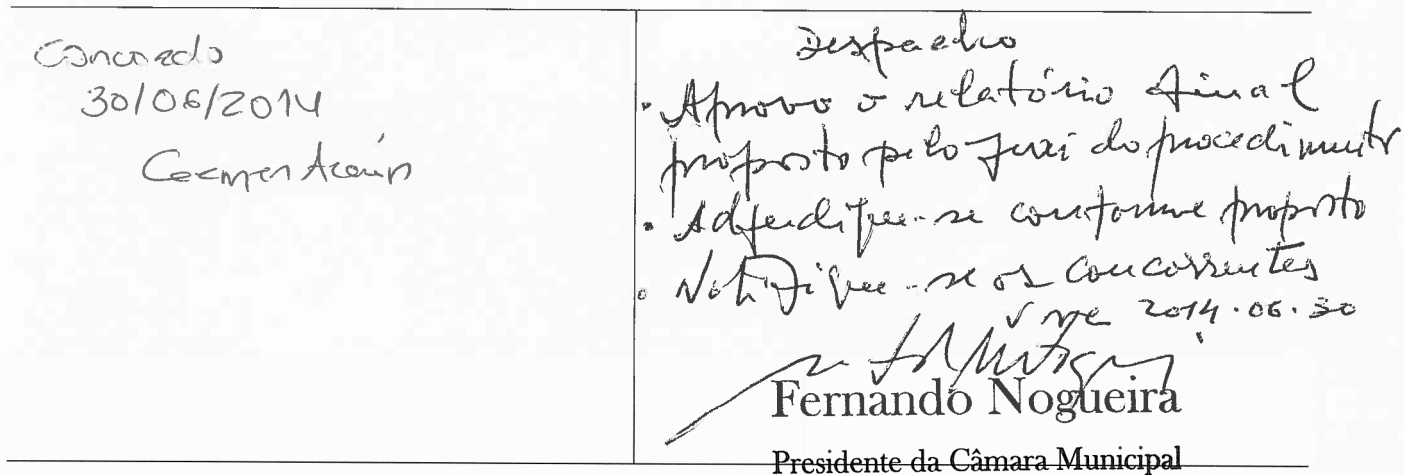 Concordo
30/06/2014
Carmen
Despacho
• Aprovo o relatório final
proposto pelo juri do procedimento
• Adjudique-se conforme proposto
• Notifique-se os concorrentes
VNC 2014.06.30
Fernando Nogueira
Presidente da Câmara Municipal